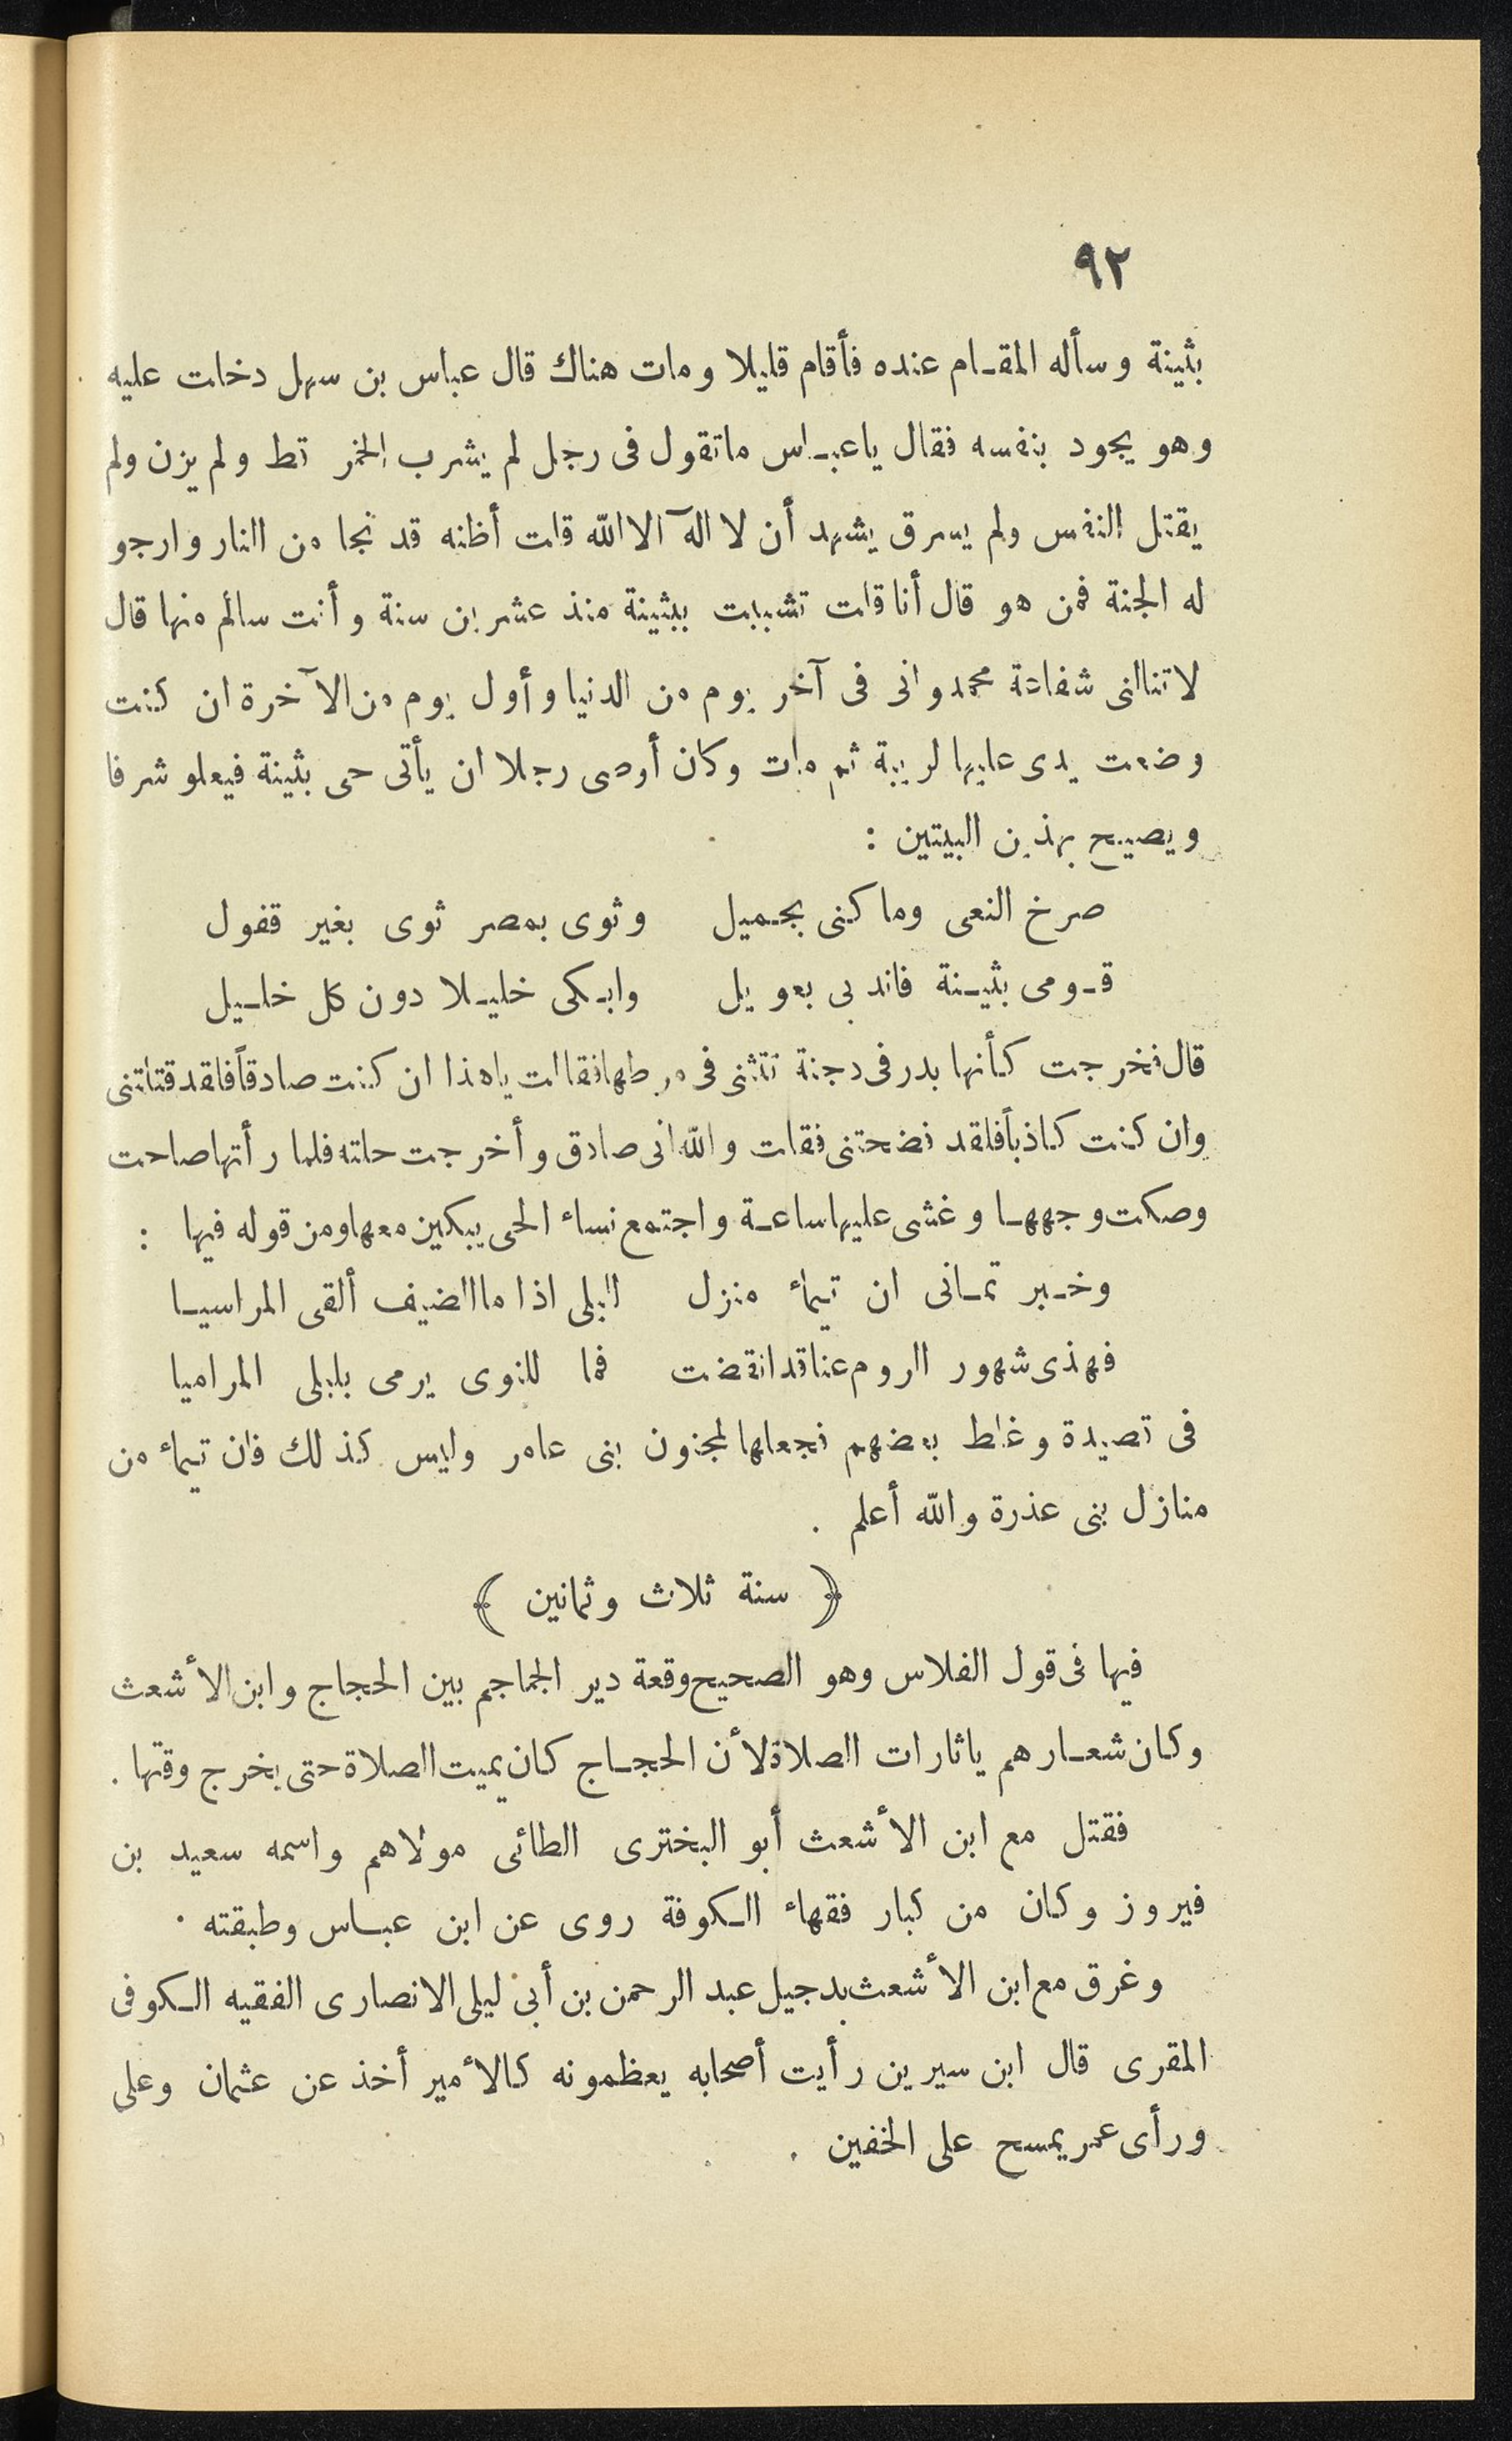 ٩٢
بثينة وسأله المقام عنده فأقام قليلا ومات هناك قال عباس بن سهل دخلت عليه
وهو يجود بنفسه فقال ياعباس ماتقول فى رجل لم يشرب الخمر قط ولم يزن ولم
يقتل النفس ولم يسرق يشهد أن لا اله الا الله قلت أظنه قد نجا من النار وارجو
له الجنة فمن هو قال أنا قلت تشببت ببثينة منذ عشرين سنة وأنت سالم منها قال
لاتنالنى شفاعة محمد وانى فى آخر يوم من الدنيا وأول يوم من الآخرة ان كنت
وضعت يدى عليها لريبة ثم مات وكان أوصى رجلا ان يأتى حى بثينة فيعلو شرفا
ويصيح بهذين البيتين :
صرخ النعى وما كنى بجميل وثوى بمصر ثوى بغير قفول
قومى بثينة فاندبى بعويل وابكى خليلا دون كل خليل
قال فخرجت كأنها بدر فى دجنة تتثنى فى مرطها فقالت ياهذا ان كنت صادقاً فلقد قتلتنى
وان كنت كاذباً فلقد فضحتنى فقلت والله انى صادق وأخرجت حلته فلما رأتها صاحت
وصكت وجهها وغشى عليها ساعة واجتمع نساء الحى يبكين معها ومن قوله فيها :
وخبرتمانى ان تيماء منزل لليلى اذا ماالصيف ألقى المراسيا
فهذى شهور الروم عنا قد انقضت فما للنوى يرمى بليلى المراميا
فى قصيدة وغلط بعضهم فجعلها لمجنون بنى عامر وليس كذلك فان تيماء من
منازل بنى عذرة والله أعلم .
﴿ سنة ثلاث وثمانين ﴾
فيها فى قول الفلاس وهو الصحيح وقعة دير الجماجم بين الحجاج وابن الأشعث
وكان شعارهم ياثارات الصلاة لأن الحجاج كان يميت الصلاة حتى يخرج وقتها .
فقتل مع ابن الأشعث أبو البخترى الطائى مولاهم واسمه سعيد بن
فيروز وكان من كبار فقهاء الكوفة روى عن ابن عباس وطبقته .
وغرق مع ابن الأشعث بدجيل عبد الرحمن بن أبى ليلى الانصارى الفقيه الكوفى
المقرى قال ابن سيرين رأيت أصحابه يعظمونه كالأمير أخذ عن عثمان وعلى
ورأى عمر يمسح على الخفين .